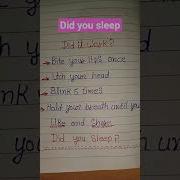 Did you sleep
Did it work?
Bite your lips once
Itch your head
Blink 5 times
Hold your breath until you
Like and Share
Did you Sleep?